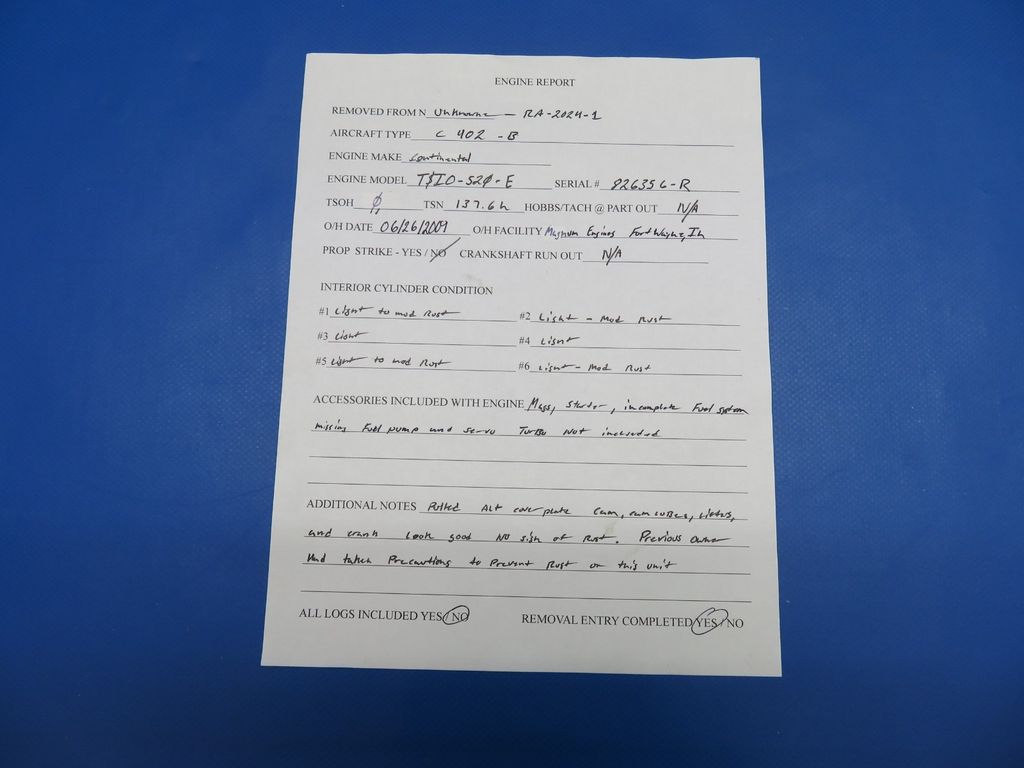 ENGINE REPORT
REMOVED FROM N Unknown - RA-2024-1
AIRCRAFT TYPE C 402 -B
ENGINE MAKE Continental
ENGINE MODEL TSIO-520-E SERIAL # 826356-R
TSOH 0 TSN 137.6h HOBBS/TACH @ PART OUT N/A
O/H DATE 06/26/2009 O/H FACILITY Magnum Engines Fort Wayne, In
PROP STRIKE - YES / NO CRANKSHAFT RUN OUT N/A
INTERIOR CYLINDER CONDITION
#1 Light to mod Rust #2 Light - Mod Rust
#3 Light #4 Light
#5 Light to mod Rust #6 Light - Mod Rust
ACCESSORIES INCLUDED WITH ENGINE Mags, Starter, incomplete Fuel system
missing Fuel pump and servo Turbo Not included
ADDITIONAL NOTES Pulled Alt cover plate Cam, cam lobes, lifters,
and crank Look good No sign of Rust. Previous Owner
Had taken Precautions to Prevent Rust on this unit
ALL LOGS INCLUDED YES / NO REMOVAL ENTRY COMPLETED YES / NO